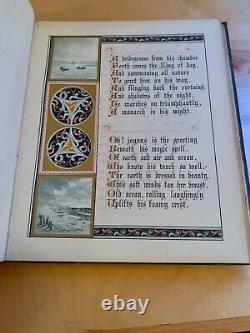 A bridegroom from his chamber
Forth comes the King of day,
And summoning all nature
To greet him on his way,
And flinging back the curtains,
And shadows of the night,
He marches on triumphantly,
A monarch in his might.
Oh! joyous is the greeting
Beneath his magic spell,
Of earth and air and ocean,
Who know his touch so well.
The earth is dressed in beauty,
While soft winds fan her breast,
Old ocean, rolling laughingly
Uplifts his hoary crest.